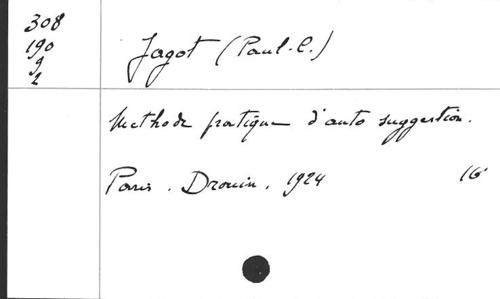 308
190
9
2
Jagot (Paul-C.)
Méthode pratique d'auto suggestion.
Paris. Drouin, 1924 16°